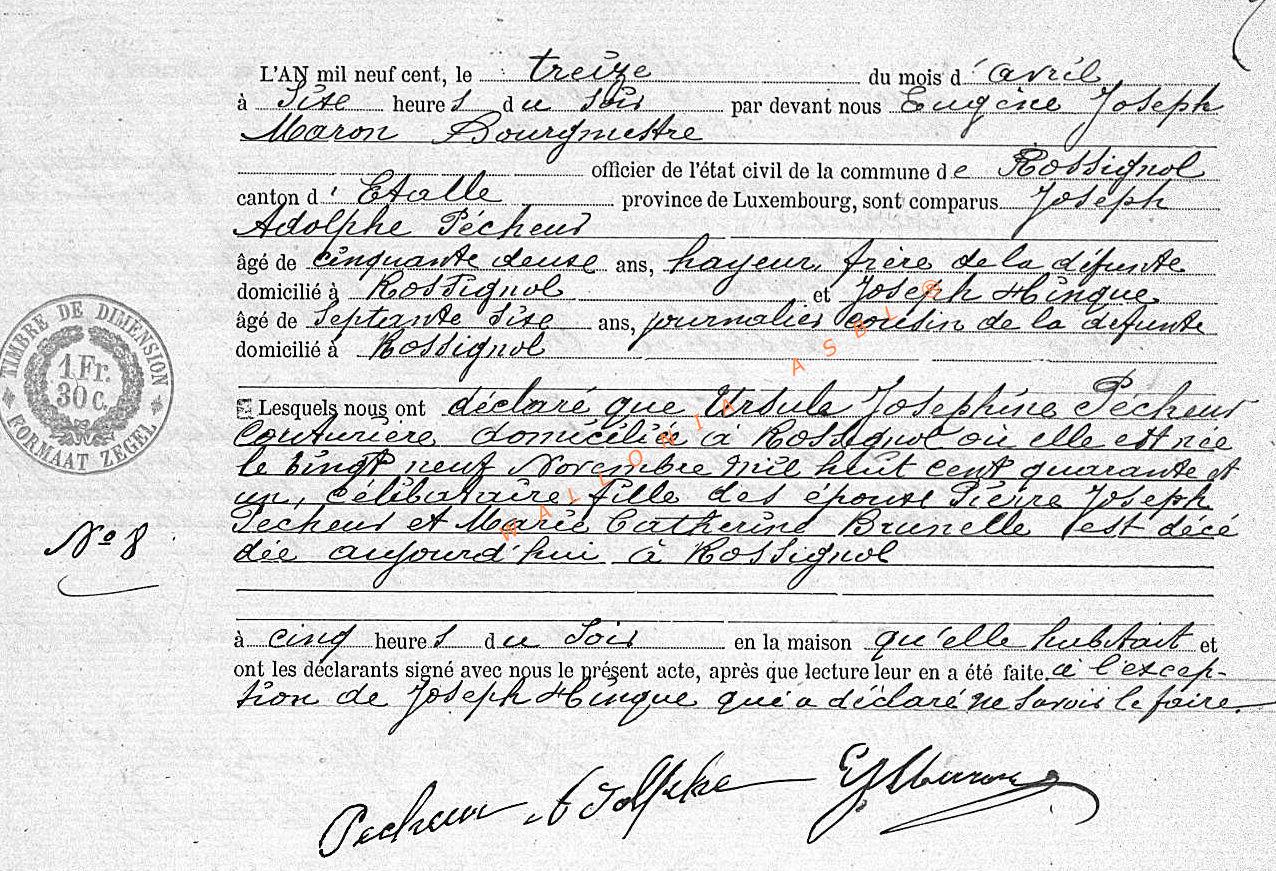 L'AN mil neuf cent, le treize du mois d'avril
à Six heures du soir par devant nous Eugène Joseph
Maron Bourgmestre
officier de l'état civil de la commune de Rossignol
canton d'Etalle province de Luxembourg, sont comparus Joseph
Adolphe Pécheur
âgé de cinquante deux ans, hayeur, frère de la défunte
domicilié à Rossignol et Joseph Hinque
âgé de Septante Six ans, journalier cousin de la défunte
domicilié à Rossignol
TIMBRE DE DIMENSION
1 Fr.
30 C.
FORMAAT ZEGEL
Lesquels nous ont déclaré que Ursule Joséphine Pécheur
couturière domiciliée à Rossignol où elle est née
le vingt neuf Novembre mil huit cent quarante et
un, célibataire, fille des époux Pierre Joseph
Pécheur et Marie Catherine Brunelle est décé
dée aujourd'hui à Rossignol
N° 8
WALLONIA ASBL
à cinq heures du soir en la maison qu'elle habitait et
ont les déclarants signé avec nous le présent acte, après que lecture leur en a été faite, à l'excep-
tion de Joseph Hinque qui a déclaré ne savoir le faire.
Pecheur Adolphe EJMaron